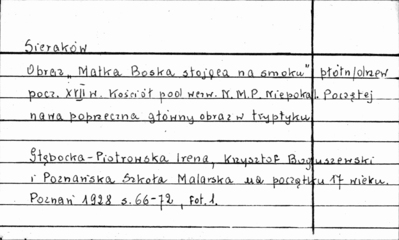 Sieraków
Obraz "Matka Boska stojąca na smoku" płótn/drzew
pocz. XVII w. Kościół pod wezw. N.M.P. Niepokal. Poczętej
nawa poprzeczna główny obraz w tryptyku
Głębocka-Piotrowska Irena, Krzysztof Boguszewski
i Poznańska Szkoła Malarska na początku 17 wieku.
Poznań 1928 s. 66-72, fot. 1.